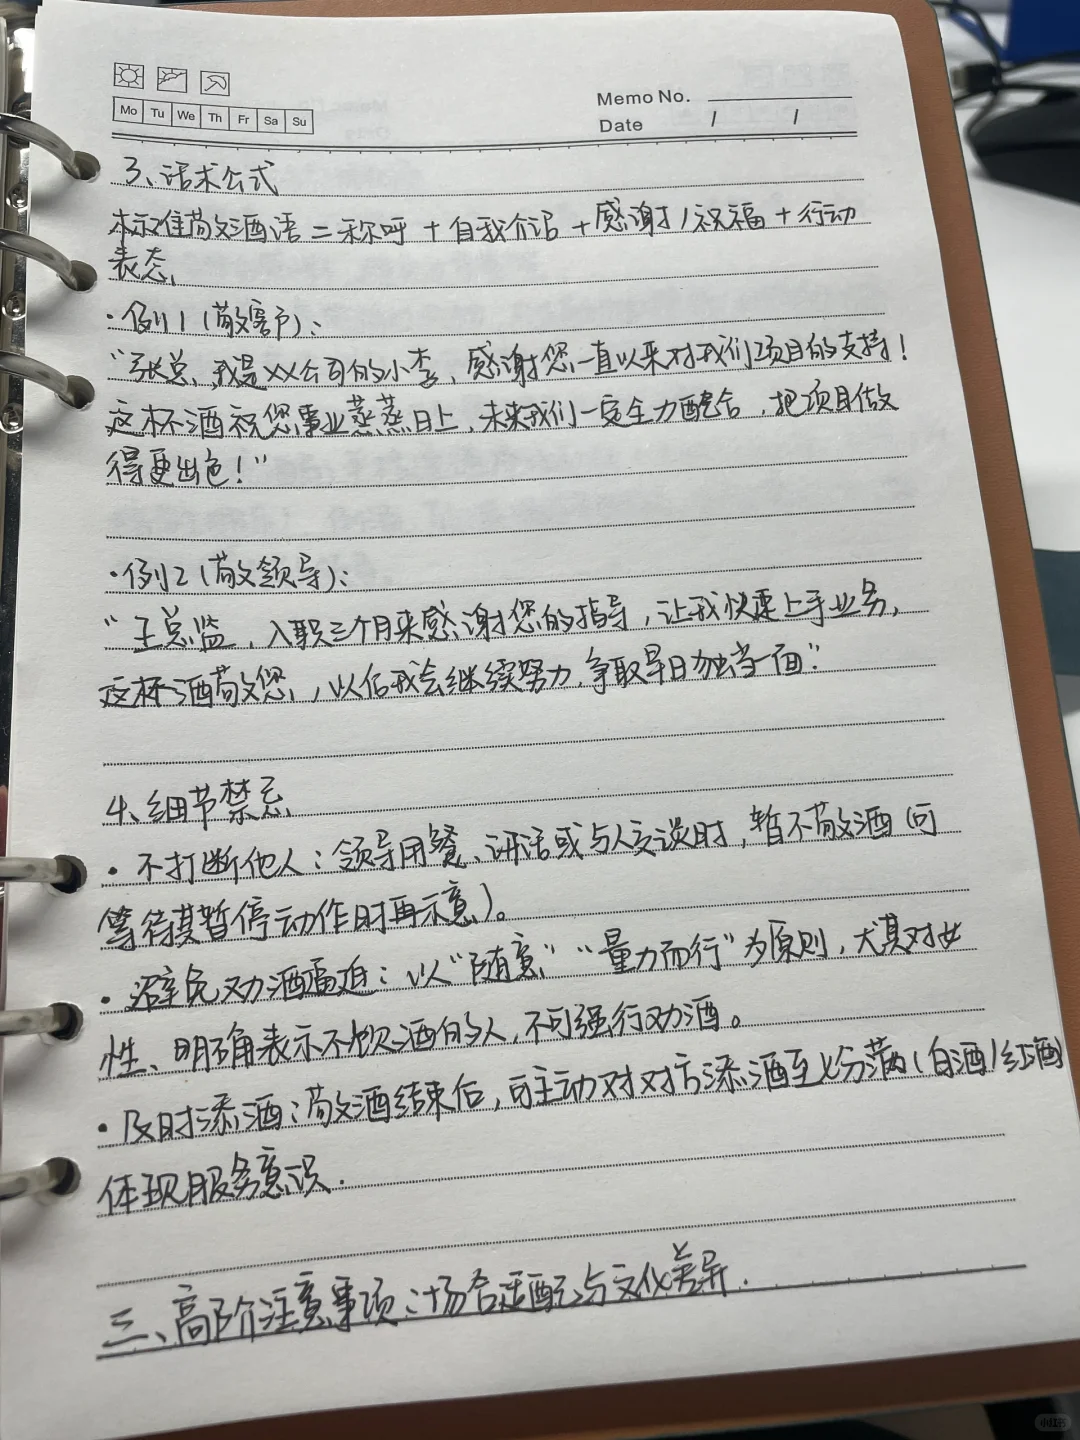 Mo Tu We Th Fr Sa Su
Memo No.
Date / /
3、话术公式
标准敬酒语=称呼+自我介绍+感谢/祝福+行动
表态,
·例1(敬客户):
“张总、我是XX公司的小李、感谢您一直以来对我们项目的支持!
这杯酒祝您事业蒸蒸日上,未来我们一定全力配合,把项目做
得更出色!”
·例2(敬领导):
“王总监,入职三个月来感谢您的指导,让我快速上手业务,
这杯酒敬您,以后我会继续努力,争取早日独当一面”
4、细节禁忌
·不打断他人:领导用餐、讲话或与人交谈时,暂不敬酒(可
等待其暂停动作时再示意)。
·避免劝酒逼迫:以“随意”“量力而行”为原则,尤其对女
性、明确表示不饮酒的人,不可强行劝酒。
·及时添酒:敬酒结束后,可主动对对方添酒至七分满(白酒/红酒)
体现服务意识.
三、高阶注意事项:场合适配与文化差异.
小红书